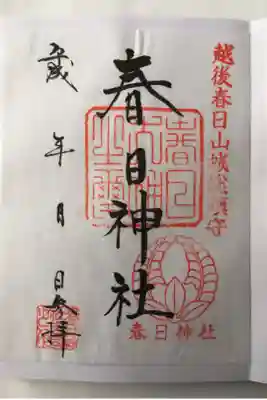 越後春日山城
春日神社
春日神社
年 月 日参拝